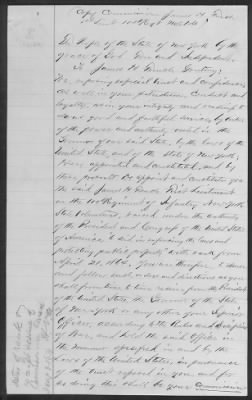 Copy Commission James H.
The People of the State of New York by the
grace of God Free and Independent
To James H. Greeting:
We, reposing especial trust and confidence
as well in your patriotism, conduct and
loyalty, as in your integrity and readiness to
do us good and faithful service by virtue
of the power and authority vested in the
Governor of our said State, by the laws of the
United States, and of the State of New York,
Have appointed and constituted, and by
these presents Do appoint and constitute you
the said James H. First Lieutenant
in the Regiment of Infantry, New York
State Volunteers, raised under the authority
of the President and Congress of the United States
of America to aid in enforcing the laws and
protecting public property with rank from
April 21, 1865. You are therefore to observe
and follow such orders and directions as you
shall from time to time receive from the President
of the United States, the Governor of the State
of New York or any other your Superior
Officer, according to the Rules and Discipline
of War, and hold the said Office in
the manner specified in and by the
laws of the United States, in pursuance
of the trust reposed in you and for
so doing this shall be your Commission